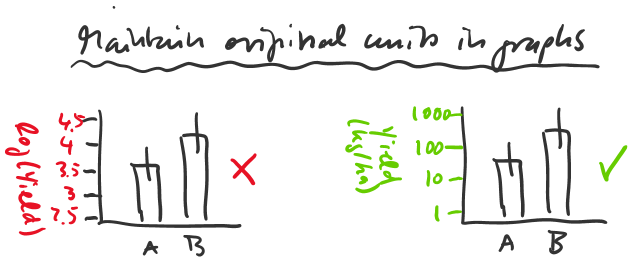 Maintain original units in graphs
log(Yield)
4.5
4
3.5
3
2.5
A B
Yield
(kg/ha)
1000
100
10
1
A B